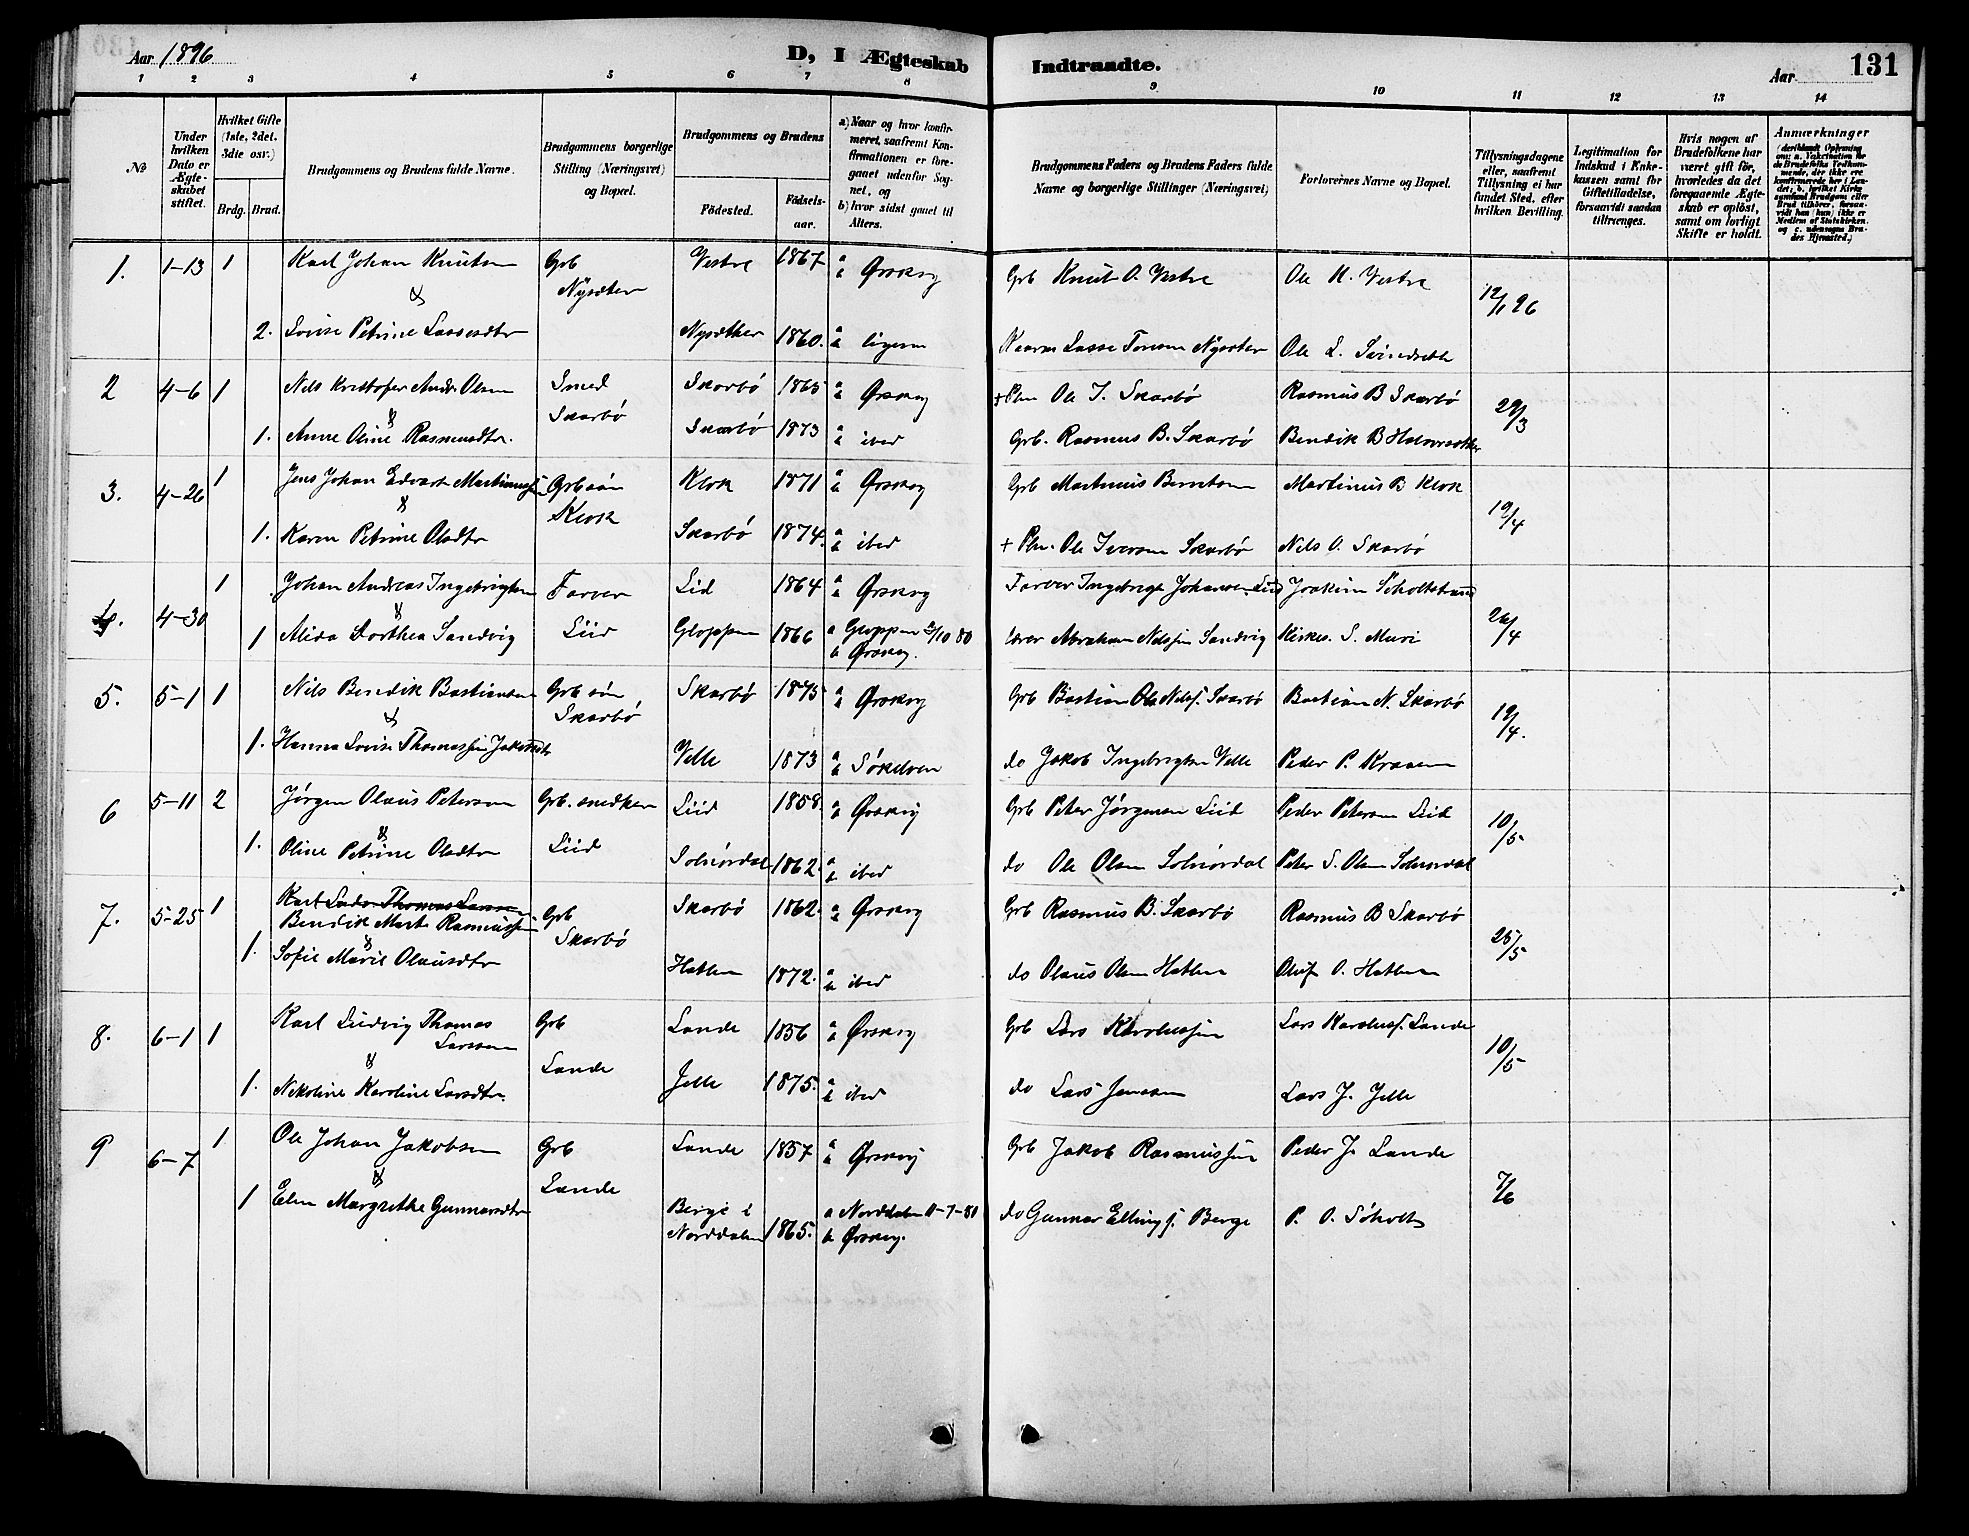 Aar 1896
D, I Ægteskab Indtraadte.
Aar
131
1 2 3 4 5 6 7 8 9 10 11 12 13 14
№
Under hvilken Dato er Ægteskabet stiftet.
Hvilket Gifte (1ste, 2det, 3die osv.)
Brdg. Brud.
Brudgommens og Brudens fulde Navne.
Brudgommens borgerlige Stilling (Næringsvei) og Bopæl.
Brudgommens og Brudens
Fødested.
Fødselsaar.
a) Naar og hvor konfirmeret, saafremt Konfirmationen er foregaaet udenfor Sognet, og
b) hvor sidst gaaet til Alters.
Brudgommens Faders og Brudens Faders fulde Navne og borgerlige Stillinger (Næringsvei)
Forlovernes Navne og Bopæl.
Tillysningsdagene eller, saafremt Tillysning ei har fundet Sted, efter hvilken Bevilling.
Legitimation for Indskud i Enkekassen samt for Giftetilladelse, forsaavidt saadan tiltrænges.
Hvis nogen af Brudefolkene har været gift før, hvorledes da det foregaaende Ægteskab er opløst, samt om lovligt Skifte er holdt.
Anmærkninger
1. 1-13 1 Karl Johan Knutsen Grb Nysæter Vestre 1867 a b Ørskog Grb Knut O. Vestre Ole K. Vestre 12/1 96
&
2. Lovise Petrine Lassesdtr Nysæther 1860. a b ligesm Lasse Nysæter Ole L.
2 4-6 1 Nils Kristofer Andr. Olsen Smed Skarbø Skarbø 1865 a b Ørskog + Ole I. Skarbø Rasmus B Skarbø 29/3
&
1. Anne Oline Rasmusdtr. Skarbø 1873 a b ibid Grb. Rasmus B. Skarbø Bendik B
3. 4-26 1 Jens Johan Edvart Martinussen Grbsøn Klok Klok 1871 a b Ørskog Grb Martinus Berntsen Martinus B Klok 19/4
&
1. Karen Petrine Olsdtr Skarbø 1874. a b ibid + Ole Iversen Skarbø Nils O. Skarbø
4. 4-30 1 Johan Andreas Ingebrigtsen Farver Liid Lid 1864 a b Ørskog Farver Ingebrigt Johansen Liid Joakim 26/4
&
1 Alida Dorthea Sandvig Gloppen 1866 a Gloppen 2/10 80 b Ørskog. Abraham Nilssen Sandvig Kirkes. S. Muri
5. 5-1 1 Nils Bendik Bastiansen Grbsøn Skarbø Skarbø 1875 a b Ørskog Grb Bastian Ole Nilss. Skarbø Bastian N. Skarbø 19/4.
&
1. Hanna Lovise Thomassine Jakobsdtr Velle 1873 a b Søkelven do Jakob Ingebrigtsen Velle Peder P.
6 5-11 2 Jørgen Olaus Petersen Grb. snedker Liid Liid 1858. a b Ørskog Grb Peter Jørgensen Liid Peder Petersen Liid 10/5
&
1. Oline Petrine Olsdtr Solnørdal 1862. a b ibid do Ole Olsen Solnørdal Peter S. Olsen Solnørdal
7. 5-25 1 Karl Thomas Larssen
Bendik Mart. Rasmussen Grb Skarbø Skarbø 1862. a b Ørskog Grb Rasmus B. Skarbø Rasmus B Skarbø 25/5
&
1. Sofie Marie Olausdtr Hatlen 1872. a b ibid do Olaus Olsen Hatlen Oluf O. Hatlen
8. 6-1 1 Karl Ludvig Thomas Larssen Grb Lande Lande 1856 a b Ørskog Grb Lars Karolussen Lars Karoluss. Lande 10/5
&
1. Nikoline Karoline Larsdtr. Jelle 1875. a b ibid do Lars Jensen Lars J. Jelle
9 6-7 1 Ole Johan Jakobsen Grb Lande Lande 1857 a b Ørskog Grb Jakob Rasmussen Peder J. Lande 7/6
&
1 Elen Margrethe Gunnarsdtr Berge i Norddalen 1865. a Norddalen 11-7-80 b Ørskog. do Gunnar Ellings. Berge P. O. Søholt